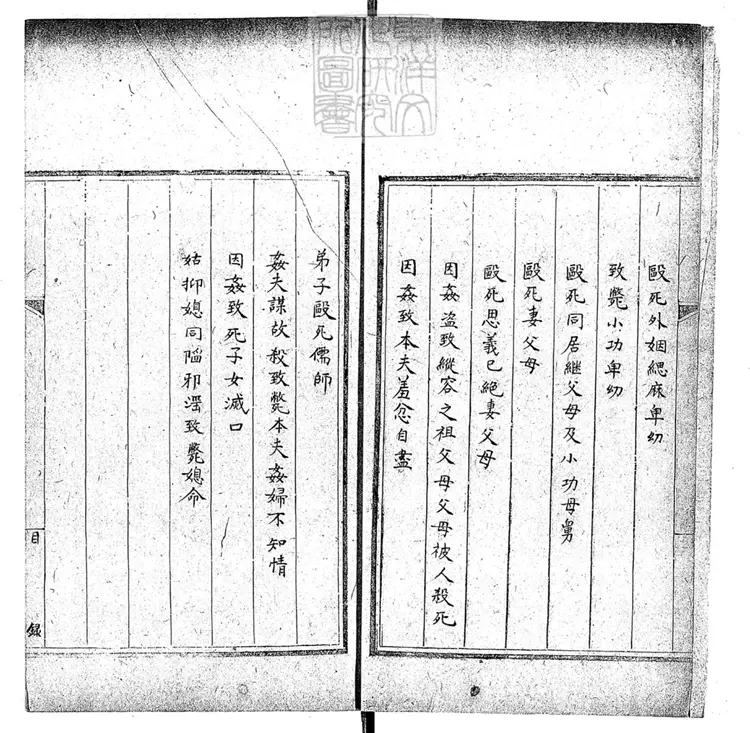 毆死外姻緦麻卑幼
致斃小功卑幼
毆死同居繼父母及小功母舅
毆死妻父母
毆死恩義已絕妻父母
因姦盜致縱容之祖父母父母被人殺死
因姦致本夫羞忿自盡
弟子毆死儒師
姦夫謀故殺致斃本夫姦婦不知情
因姦致死子女滅口
姑抑媳同陷邪淫致斃媳命
目錄
東洋文化研究所圖書